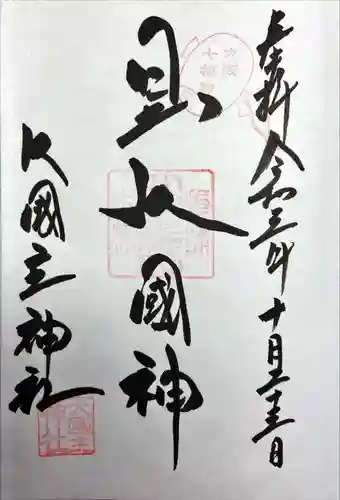 奉拝 令和三年十月二十三日
大阪
七福神
日出大國神
大國主神社
大國主
神社